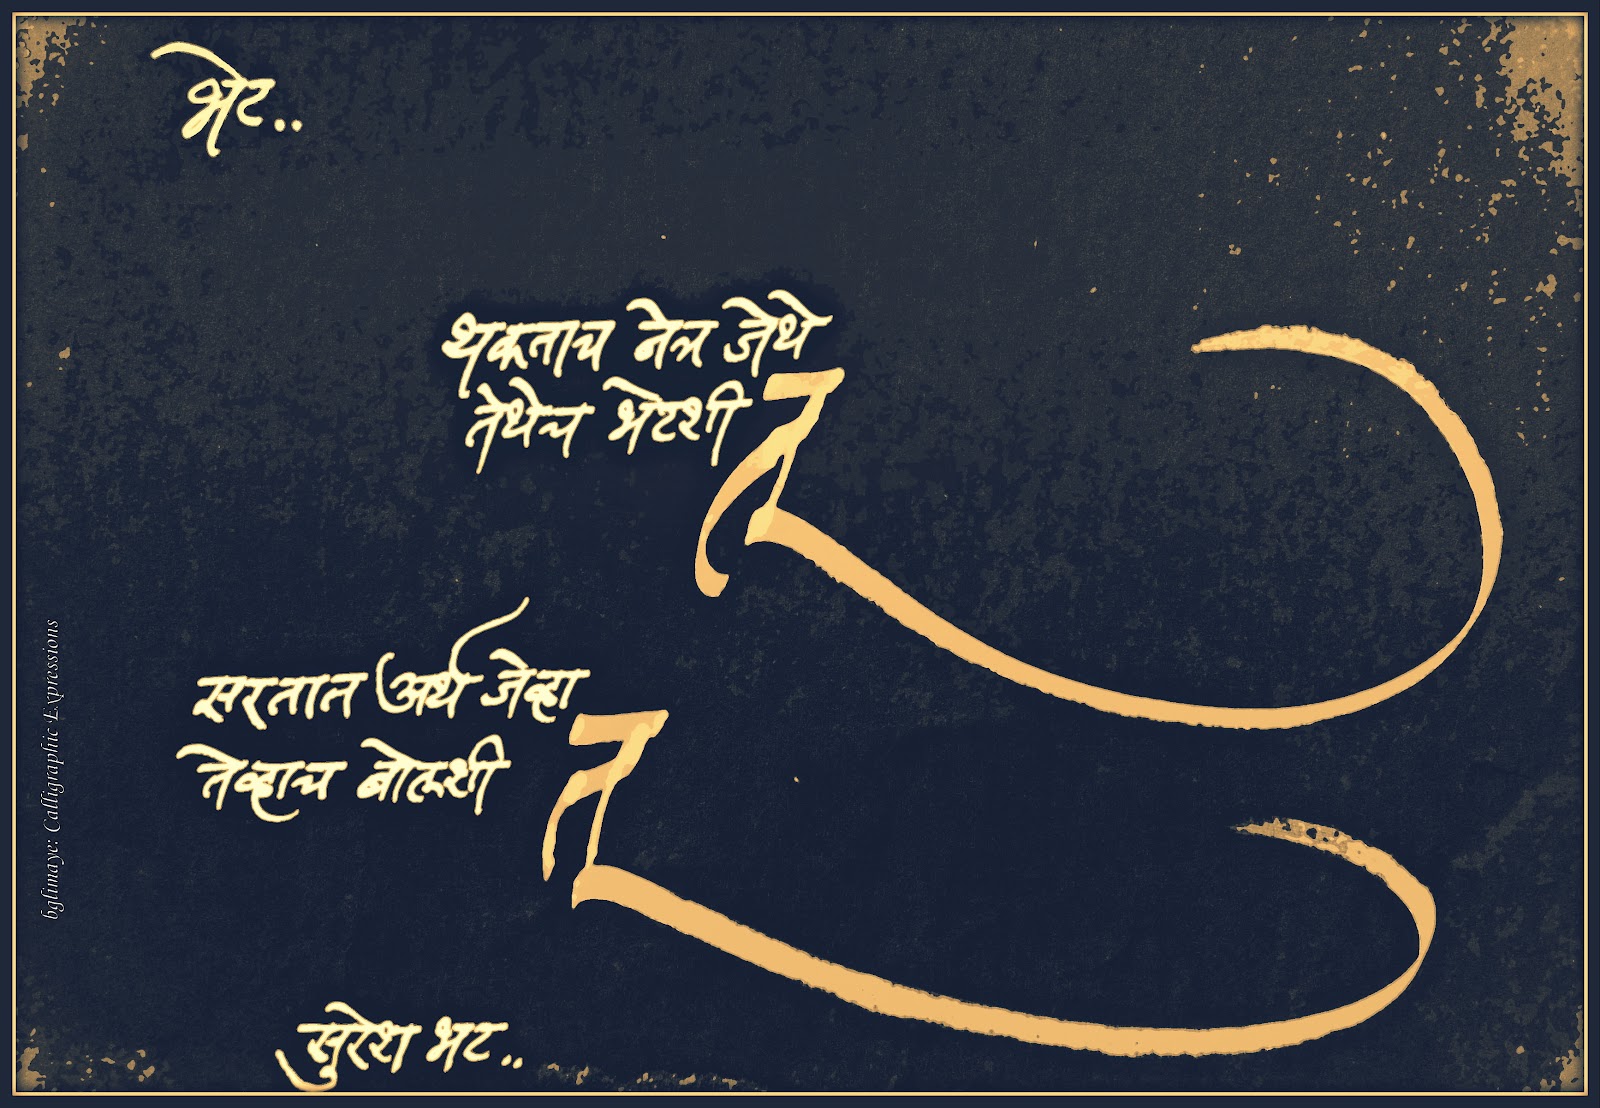 भेट..
थकताच नेत्र जेथे
तेथेच भेटशी तू
सरतात अर्थ जेव्हा
तेव्हाच बोलशी तू
सुरेश भट..
bglimaye: Calligraphic Expressions